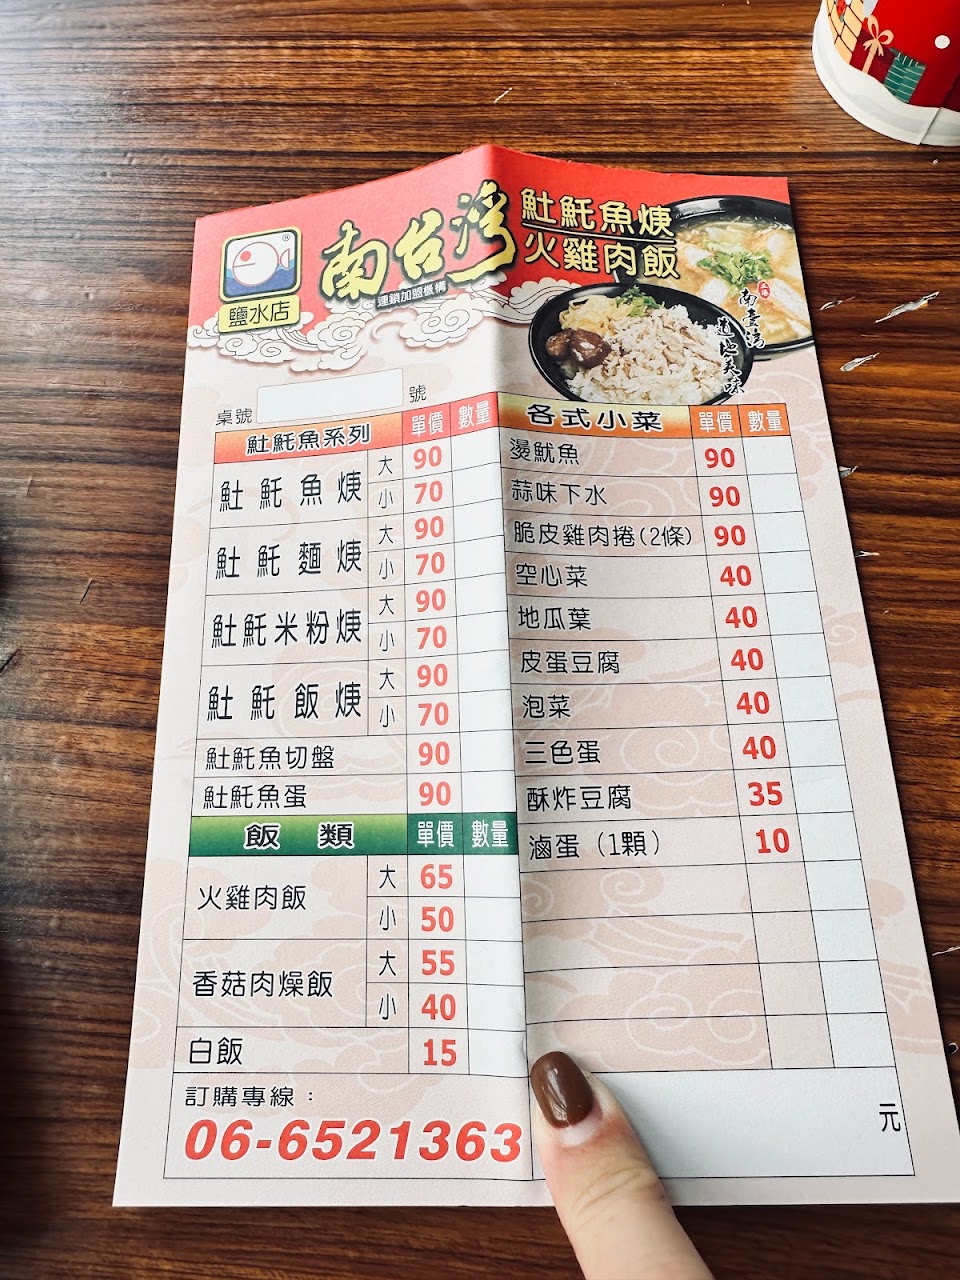 南台灣
連鎖加盟機構
®
鹽水店
𩵚魠魚焿
火雞肉飯
南臺灣
道地美味
桌號 號
𩵚魠魚系列 單價 數量
𩵚魠魚焿 大 90
小 70
𩵚魠麵焿 大 90
小 70
𩵚魠米粉焿 大 90
小 70
𩵚魠飯焿 大 90
小 70
𩵚魠魚切盤 90
𩵚魠魚蛋 90
飯類 單價 數量
火雞肉飯 大 65
小 50
香菇肉燥飯 大 55
小 40
白飯 15
訂購專線：
06-6521363
各式小菜 單價 數量
燙魷魚 90
蒜味下水 90
脆皮雞肉捲(2條) 90
空心菜 40
地瓜葉 40
皮蛋豆腐 40
泡菜 40
三色蛋 40
酥炸豆腐 35
滷蛋（1顆） 10
元